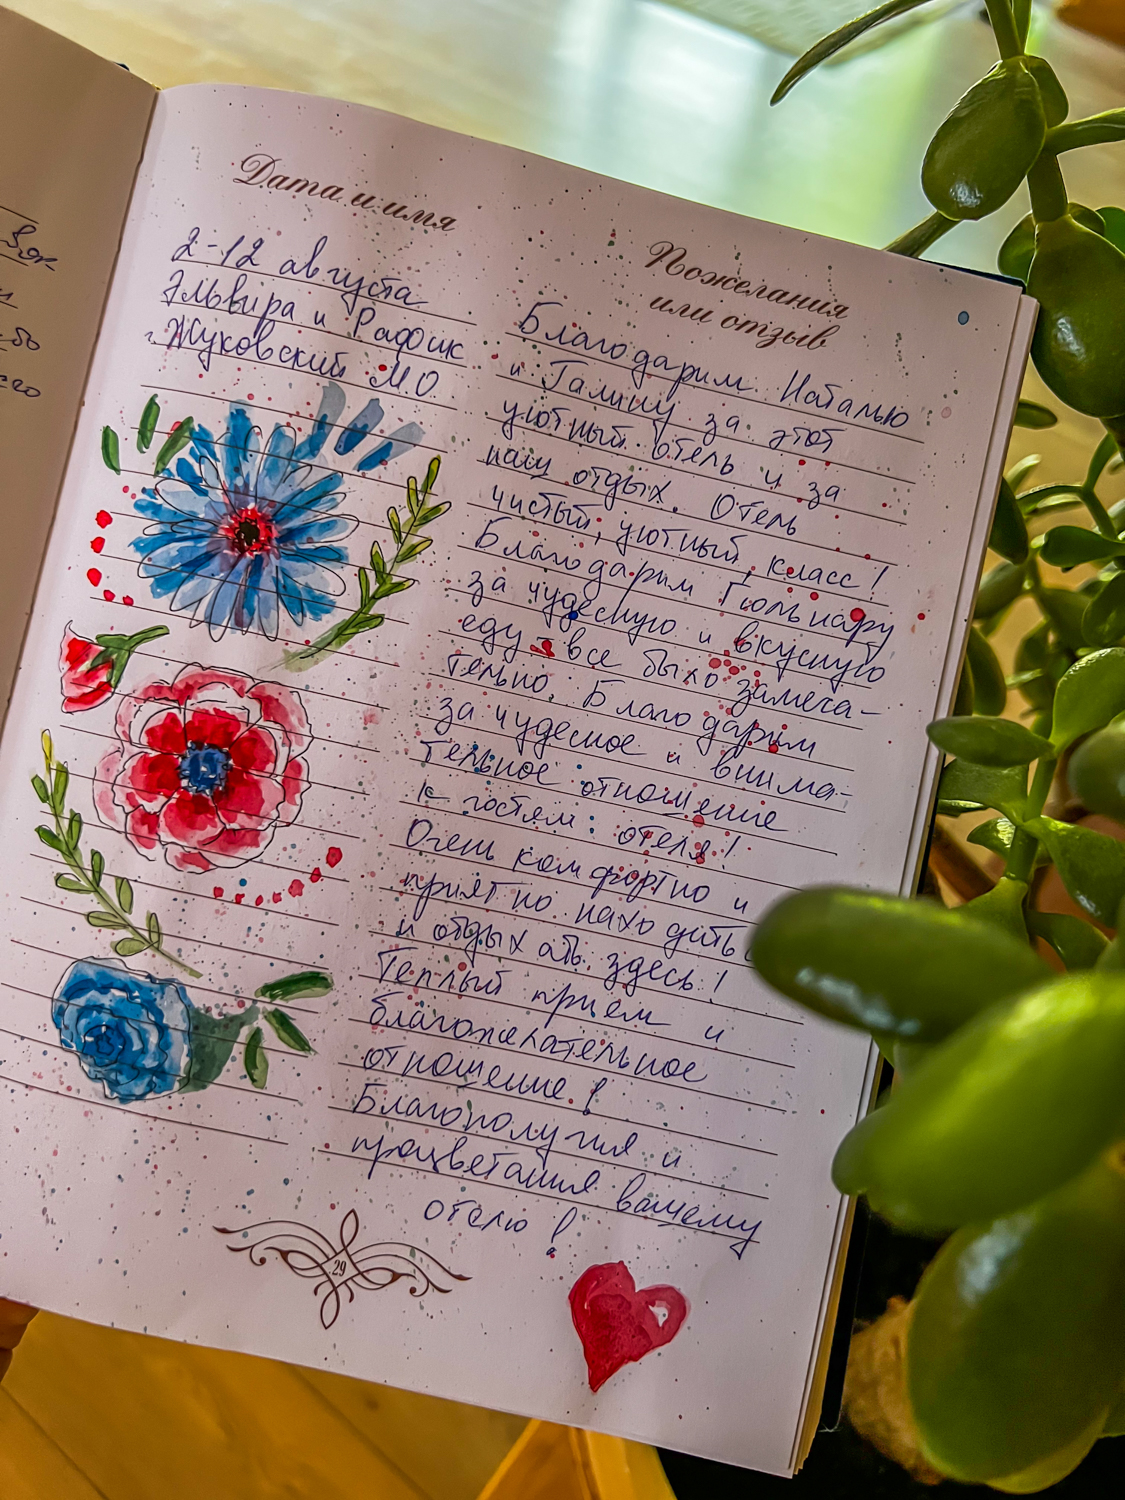 Дата и имя
2-12 августа
Эльвира и Рафик
г. Жуковский МО
Пожелания
или отзыв
Благодарим Наталью
и Галину за этот
уютный отель и за
наш отдых. Отель
чистый, уютный, класс!
Благодарим Гюльнару
за чудесную и вкусную
еду - все было замеча-
тельно. Благодарим
за чудесное и внима-
тельное отношение
к гостям отеля!
Очень комфортно и
приятно находить
и отдыхать здесь!
Теплый прием и
благожелательное
отношение!
Благополучия и
процветания вашему
отелю!
29